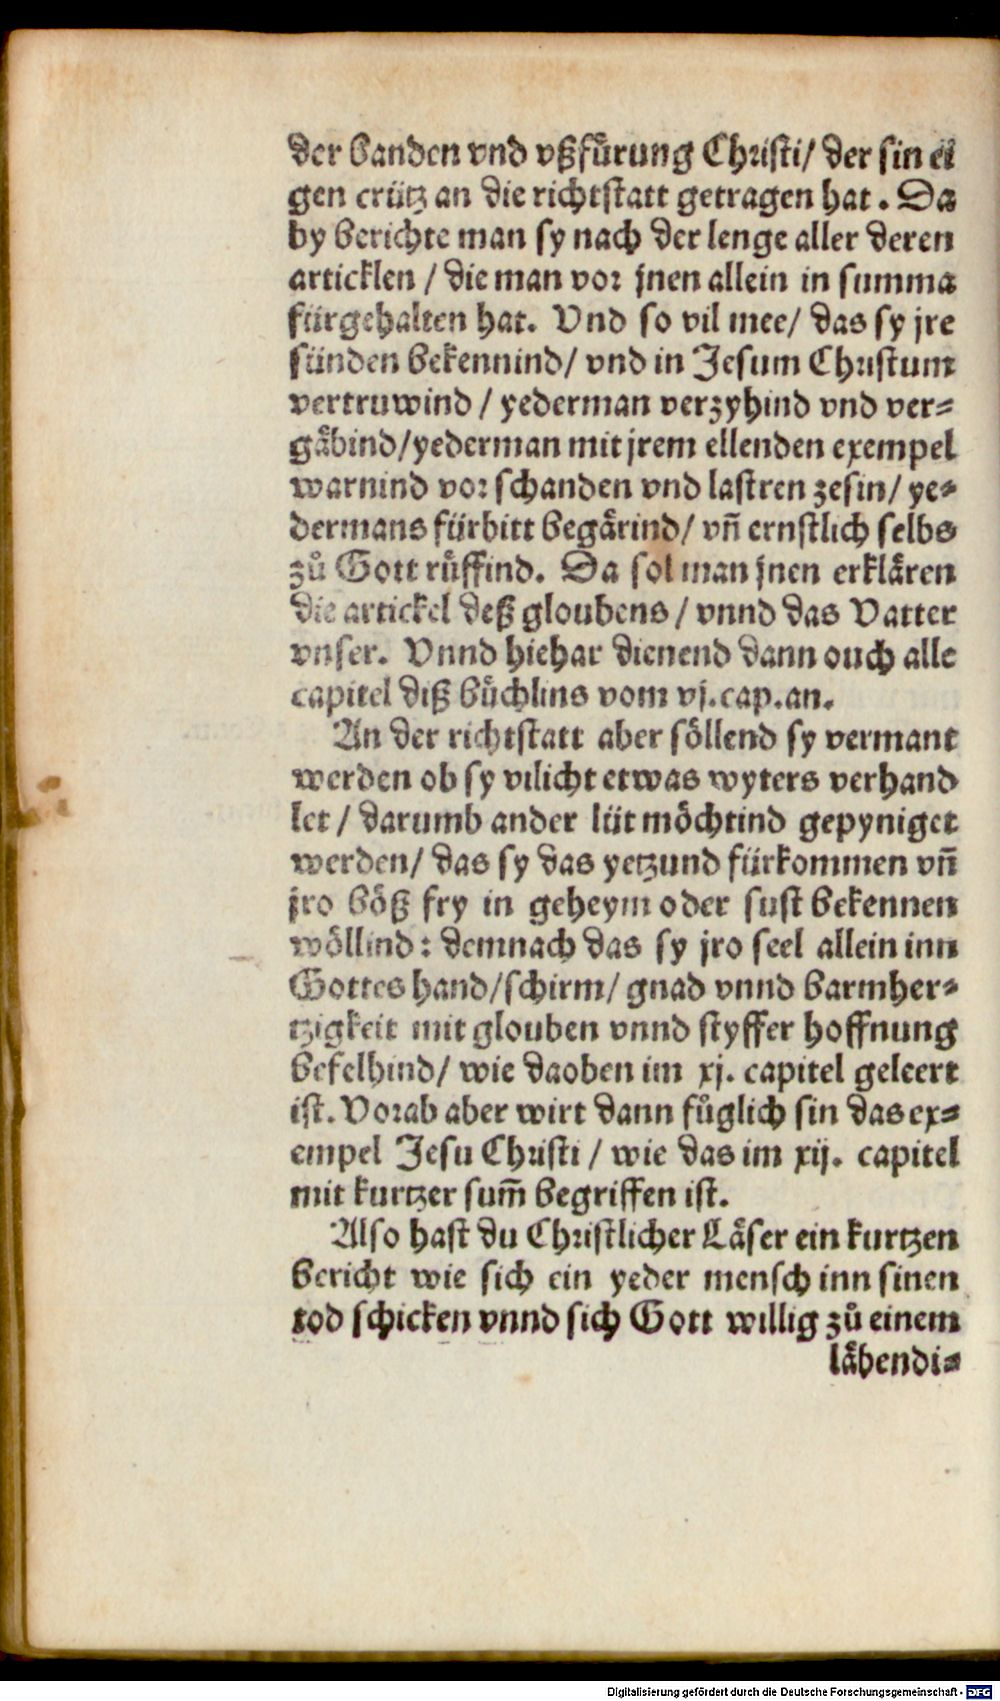 der banden vnd vßfuͤrung Christi/ der sin ei
gen crütz an die richtstatt getragen hat. Da
by berichte man sy nach der lenge aller deren
articklen / die man vor jnen allein in summa
fürgehalten hat. Vnd so vil mee/ das sy jre
sünden bekennind/ vnd in Jesum Christum
vertruwind / yederman verzyhind vnd ver⸗
gaͤbind/yederman mit jrem ellenden exempel
warnind vor schanden vnd lastren zesin/ ye⸗
dermans fürbitt begaͤrind/ vñ ernstlich selbs
zuͦ Gott ruͤffind. Da sol man jnen erklaͤren
die artickel deß gloubens / vnnd das Vatter
vnser. Vnnd hiehar dienend dann ouch alle
capitel diß buͤchlins vom vj.cap.an.
An der richtstatt aber soͤllend sy vermant
werden ob sy vilicht etwas wyters verhand
let / darumb ander lüt moͤchtind gepyniget
werden/ das sy das yetzund fürkommen vñ
jro boͤß fry in geheym oder sust bekennen
woͤllind: demnach das sy jro seel allein inn
Gottes hand/schirm/ gnad vnnd barmher⸗
tzigkeit mit glouben vnnd styffer hoffnung
befelhind/ wie daoben im xj. capitel geleert
ist. Vorab aber wirt dann fuͤglich sin das ex⸗
empel Jesu Christi / wie das im xij. capitel
mit kurtzer sum̃ begriffen ist.
Also hast du Christlicher Laͤser ein kurtzen
bericht wie sich ein yeder mensch inn sinen
tod schicken vnnd sich Gott willig zuͦ einem
laͤbendi⸗
Digitalisierung gefördert durch die Deutsche Forschungsgemeinschaft - DFG